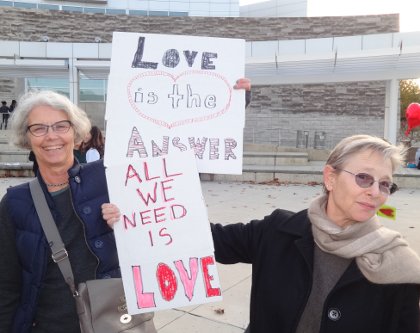 LOVE
is the
ANSWER
ALL
WE
NEED
IS
LOVE